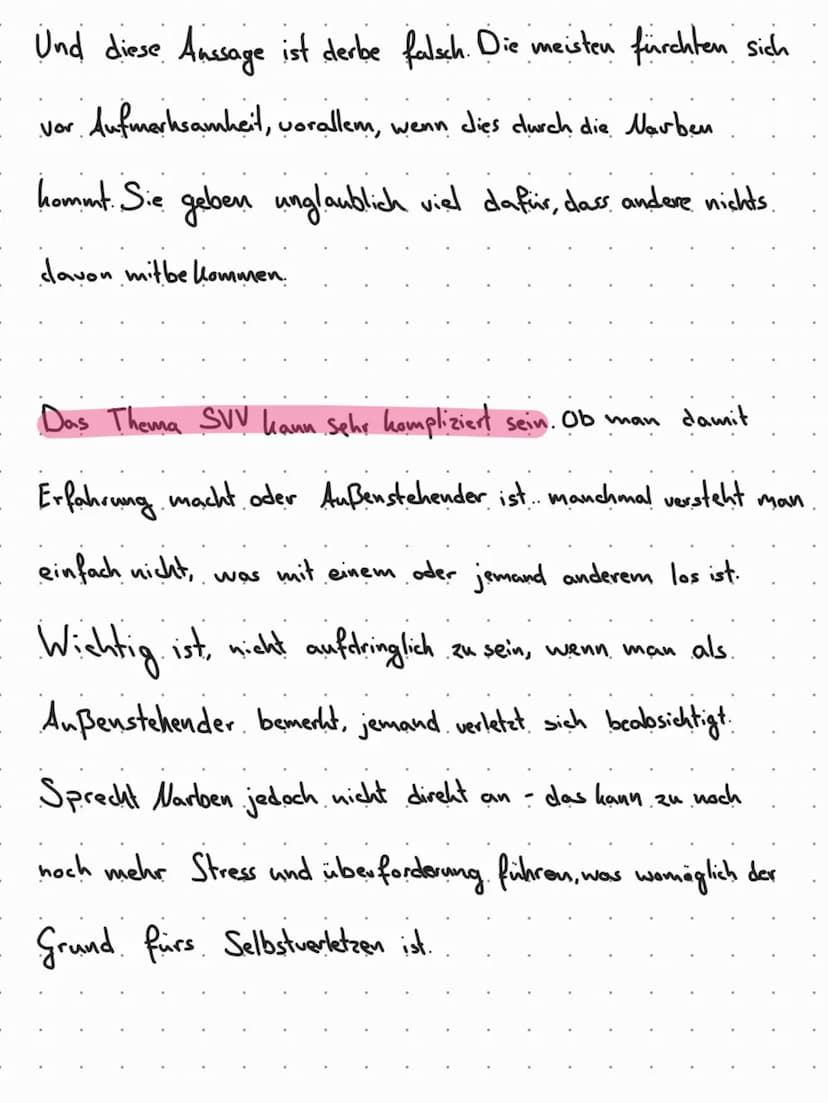 Und diese Aussage ist derbe falsch. Die meisten fürchten sich
vor Aufmerksamheit, vorallem, wenn dies durch die Narben
kommt. Sie geben unglaublich viel dafür, dass andere nichts
davon mitbekommen.
Das Thema SVV kann sehr kompliziert sein. Ob man damit
Erfahrung macht oder Außenstehender ist.. manchmal versteht man
einfach nicht, was mit einem oder jemand anderem los ist.
Wichtig ist, nicht aufdringlich zu sein, wenn man als
Außenstehender bemerkt, jemand verletzt sich beabsichtigt.
Sprecht Narben jedoch nicht direkt an - das kann zu noch
noch mehr Stress und überforderung führen, was womöglich der
Grund fürs Selbstverletzen ist.